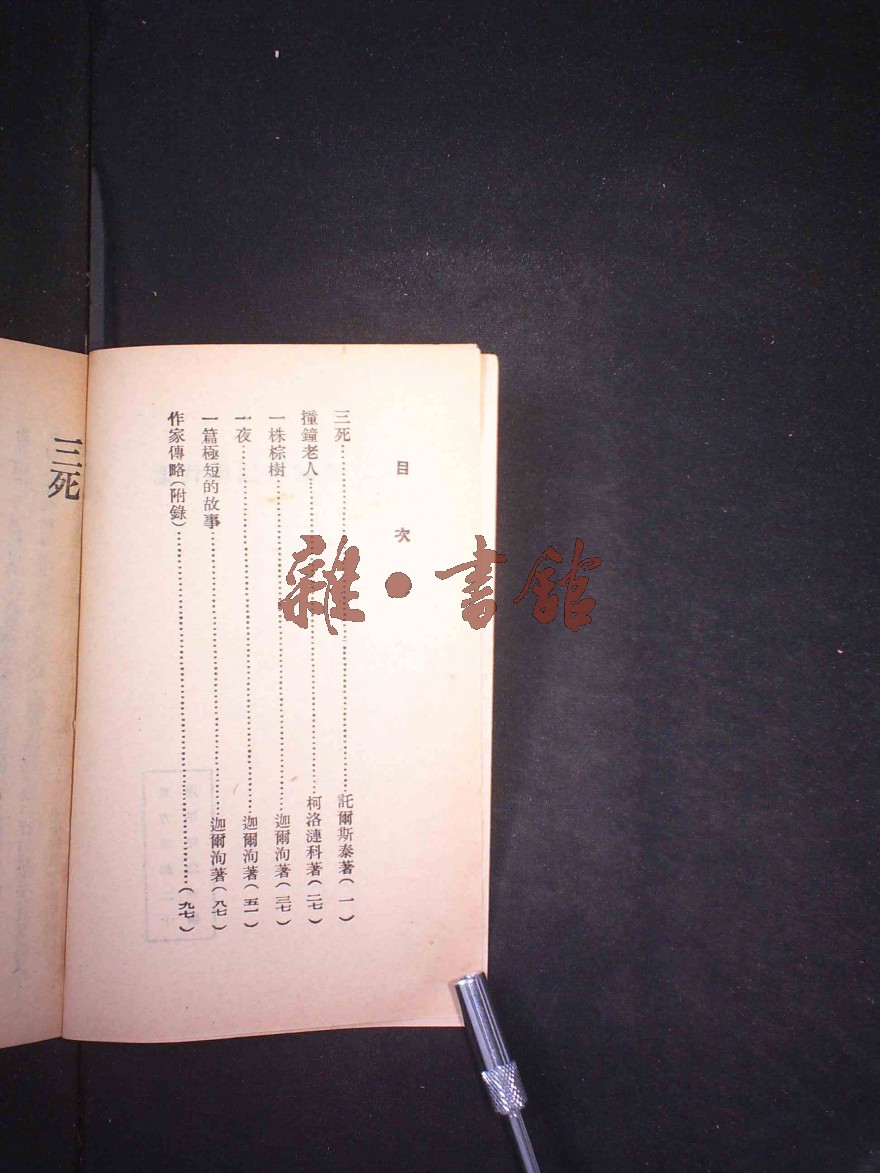 目次
三死……託爾斯泰著(一)
撞鐘老人……柯洛漣科著(二七)
一株棕樹……迦爾洵著(三七)
一夜……迦爾洵著(五一)
一篇極短的故事……迦爾洵著(八七)
作家傳略(附錄)……(九七)
三死
雜・書館